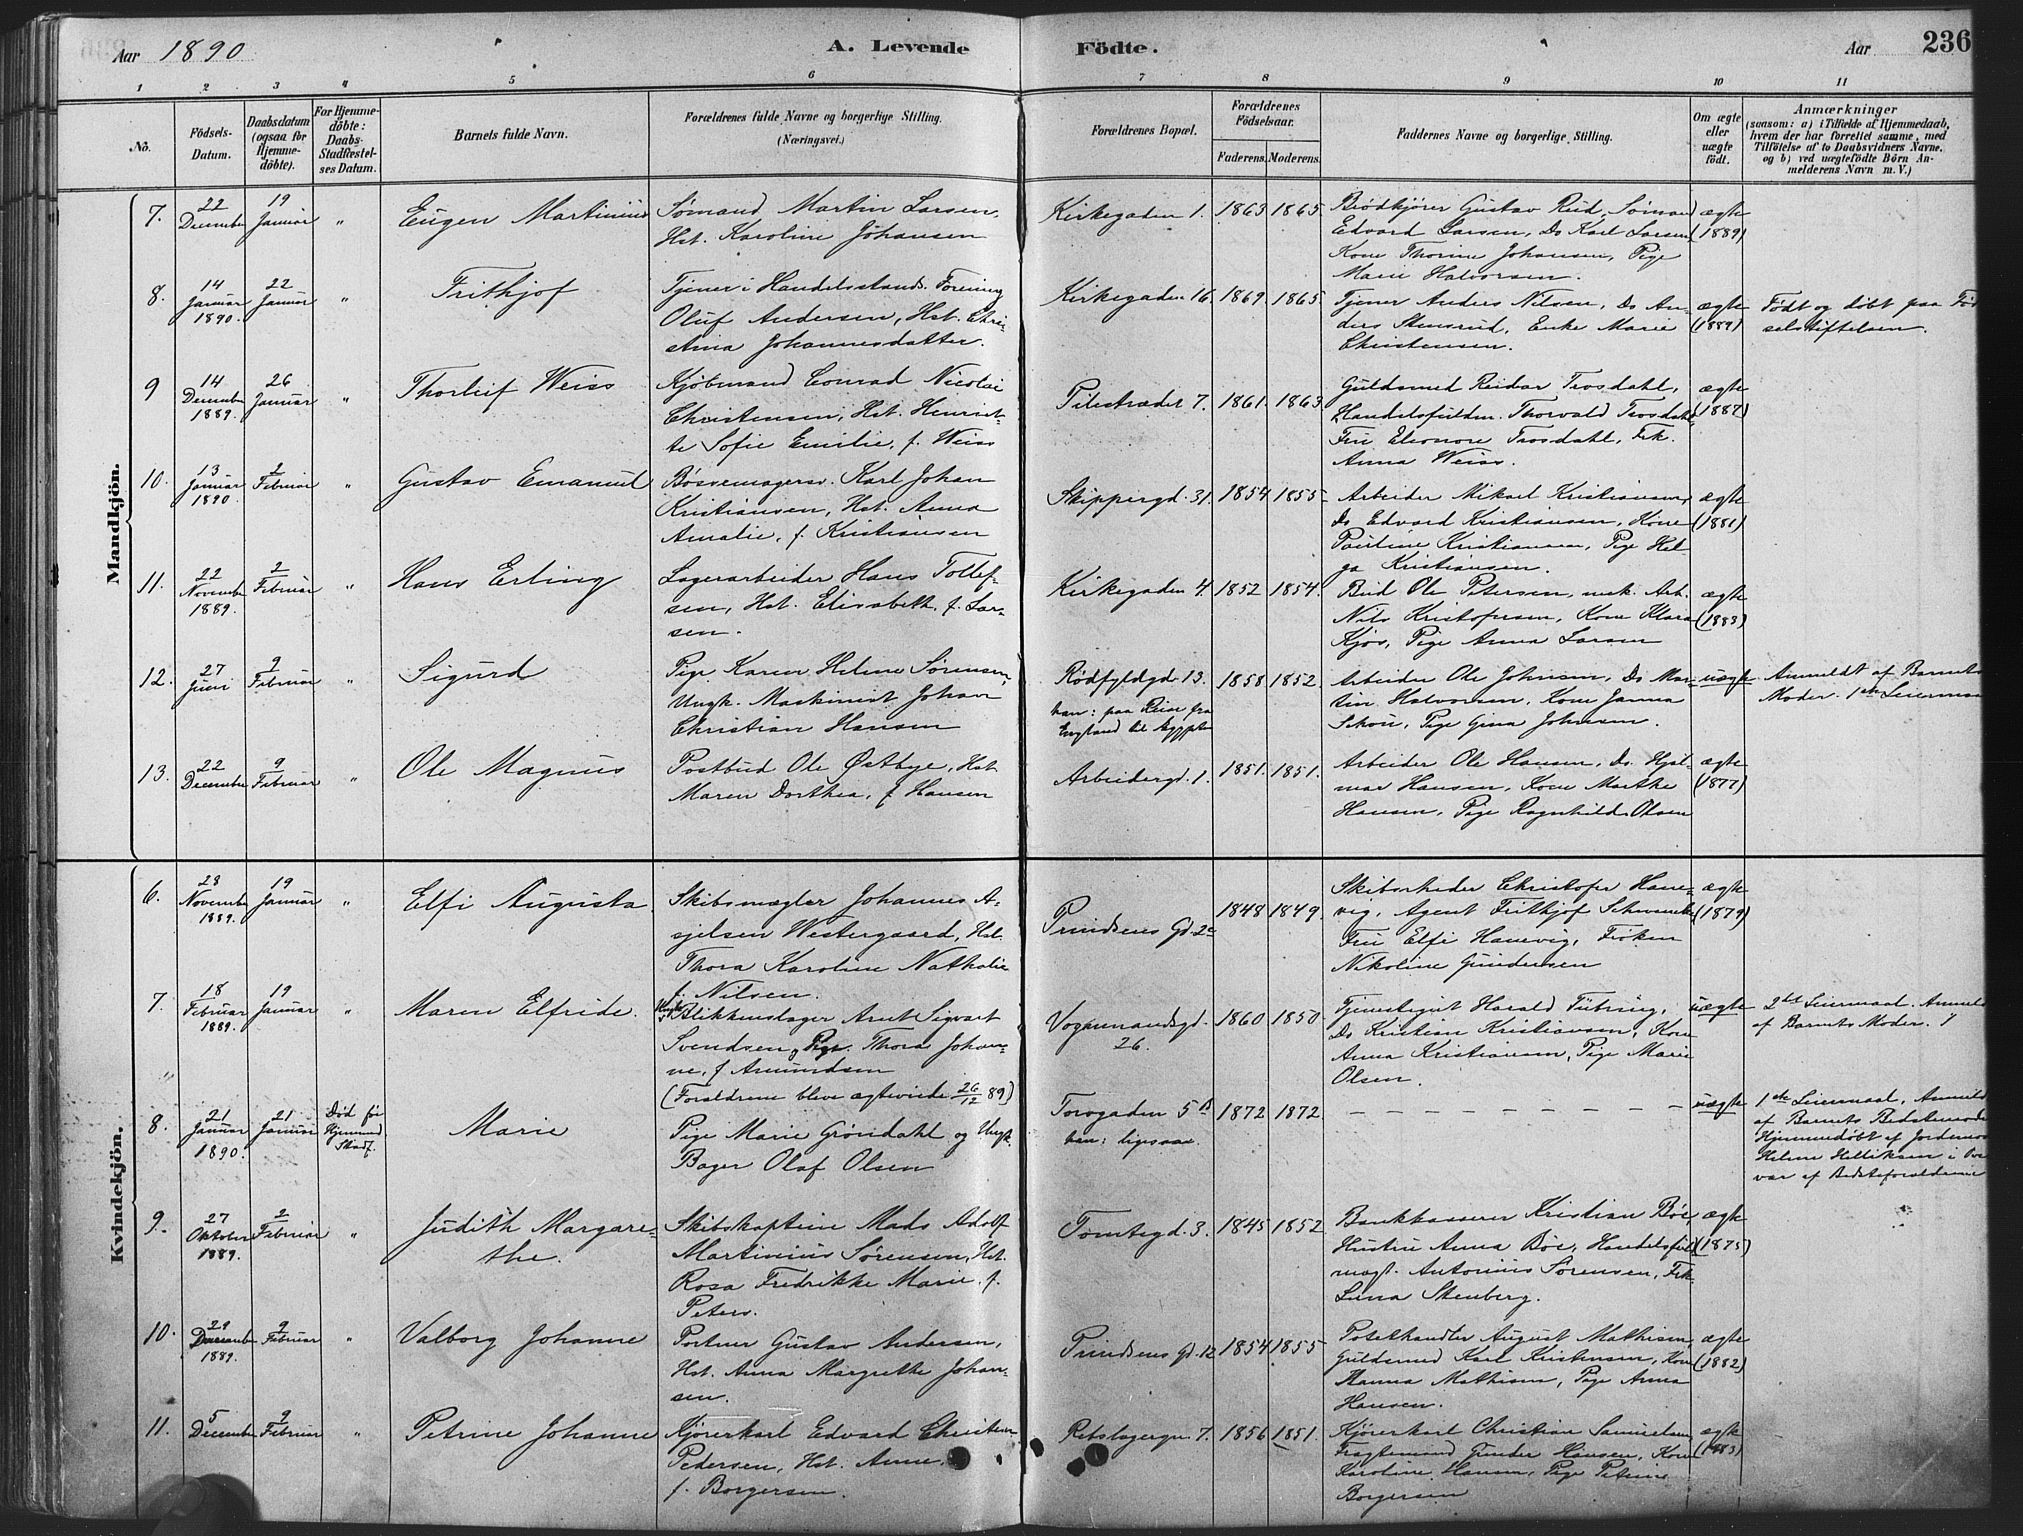 Aar 1890
A. Levende Födte.
Aar
236
1 2 3 4 5 6 7 8 9 10 11
No.
Födsels-Datum.
Daabsdatum (ogsaa for Hjemme-döbte).
For Hjemme-döbte: Daabs-Stadfæstel-ses Datum.
Barnets fulde Navn.
Forældrenes fulde Navne og borgerlige Stilling. (Næringsvei.)
Forældrenes Bopæl.
Forældrenes Födselsaar.
Faderens. Moderens.
Faddernes Navne og borgerlige Stilling.
Om ægte eller uægte födt.
Anmærkninger
(saasom: a) i Tilfælde af Hjemmedaab,
hvem der har forrettet samme, med
Tilföielse af to Daabsvidners Navne,
og b) ved uægtefödte Börn An-
melderens Navn m. V.)
Mandkjön.
7. 22 December 19 Januar " Eugen Martinius Sømand Martin Larsen, Hst. Karoline Johansen Kirkegaden 1. 1863 1865. Brödkjører Gustav Rud, Sømand
Edvard Larsen, Do Karl Larsen,
Kone Thorine Johansen, Pige
Marie Halvorsen. ægte (1889)
8. 14 Januar 1890. 22 Januar " Frithjof Tjener i Handelsstands Forening
Oluf Andersen, Hst. Chri-
stina Johannesdatter. Kirkegaden 16. 1869. 1865. Tjener Anders Nilsen, Do An-
ders Stensrud, Enke Marie
Christensen. ægte (1889) Født og døbt paa Fød
selsstiftelsen.
9 14 December 1889. 26 Januar " Thorleif Weiss Kjøbmand Conrad Nicolai
Christensen, Hst. Henriet-
te Sofie Emilie, f. Weiss Pilestrædet 7. 1861. 1863 Guldsmed Reidar Trosdahl,
Handelsfuldm. Thorvald Trosdahl,
Fru Eleonore Trosdahl, Frk.
Anna Weiss. ægte (1887)
10. 13 Januar 1890 2 Februar " Gustav Emanuel Bøssemagersv. Karl Johan
Kristiansen, Hst. Anna
Amalie, f. Kristiansen Skippergd. 31. 1854 1855 Arbeider Mikael Kristiansen,
Do Edvard Kristiansen, Kone
Pauline Kristiansen, Pige Hel
ga Kristiansen. ægte (1881)
11. 22 November 1889. 2 Februar " Hans Erling Lagerarbeider Hans Tollef-
sen, Hst. Elisabeth, f. Lar-
sen. Kirkegaden 4. 1852 1854. Bud Ole Petersen, mek. Arb.
Nils Kristofersen, Kone Klara
Kjøs, Pige Anna Larsen ægte (1883)
12. 27 Juni 9 Februar " Sigurd Pige Karen Helene Sørensen,
Ungk. Maskinist Johan
Christian Hansen Rødfyldgd. 13.
han: paa Reise fra
England til Ægypten 1858 1852. Arbeider Ole Johnsen, Do Mar-
tin Halvorsen, Kone Janna
Skou, Pige Gina Johnsen. uægte Anmeldt af Barnets
Moder. 1ste Leiermaal
13. 22 December 9 Februar " Ole Magnus Postbud Ole Østbye, Hst
Maren Dorthea, f. Hansen Arbeidergd. 1. 1851. 1851. Arbeider Ole Hansen, Do. Hjal-
mar Hansen, Kone Marthe
Hansen, Pige Ragnhild Olsen ægte (1877)
Kvindekjön.
6. 23 November 1889. 19 Januar " Elfi Augusta Skibsmægler Johannes A-
sjelsen Westergaard, Hst.
Thora Karoline Nathalie
f. Nilsen. Prindsens Gd. 2 1848 1849. Skibsrheder Christofer Hane-
vig, Agent Frithjof
Fru Elfi Hanevig, Frøken
Nikoline Gundersen ægte (1879)
7. 18 Februar 1889. 19 Januar " Maren Elfride. Ungk. Blikkenslager Arnt Sigvart
Svendsen, Pige Thora Johan-
ne, f. Amundsen
(Forældrene bleve ægteviede 26/12 89) Vognmandsgd. 26. 1860 1850. Tjenestegut Harald,
Do Kristian Kristiansen, Kone
Anna Kristiansen, Pige Marie
Olsen. uægte 2det Leiermaal. Anmeldt
af Barnets Moder.
8. 21 Januar 1890. 21 Januar Død før Hjemmed. Stadf. Marie Pige Marie Grøndahl og Ungk.
Bager Olaf Olsen Torvgaden 5
han: ligesaa. 1872 1872. – – – – – – – – – uægte 1ste Leiermaal, Anmeldt
af Barnets Bedstemoder
Hjemmedøbt af Jordemor
Helene Helliksen i Over
vær af Bedsteforældrene
9. 27 Oktober 1889. 2 Februar " Judith Margare-
the. Skibskaptein Mads Adolf
Martinius Sørensen, Hst.
Rosa Fredrikke Marie, f.
Peters. Tomtegd. 3. 1845 1852 Bankkasserer Kristian Bøe
Hustru Anna Bøe, Handelsfuld
mægt. Antonius Sørensen, Frk.
Luna Stenberg. ægte (1875)
10. 29 December 1889. 9 Februar " Valborg Johanne Portner Gustav Andersen,
Hst. Anna Margrethe Johan-
sen. Prindsens Gd. 12 1854 1855 August Mathisen,
Guldsmed Karl Kristensen, Kone
Hanna Mathisen, Pige Anna
Hansen. ægte (1882)
11. 5 December 9 Februar " Petrine Johanne Kjørerkarl Edvard Christian
Pedersen, Hst. Anne,
f. Borgersen. Rebslagergn. 7. 1856 1851. Kjørerkarl Christian Samuelsen,
Fragtemand Gunder Hansen, Kone
Karoline Hansen, Pige Petrine
Borgersen ægte (1883)